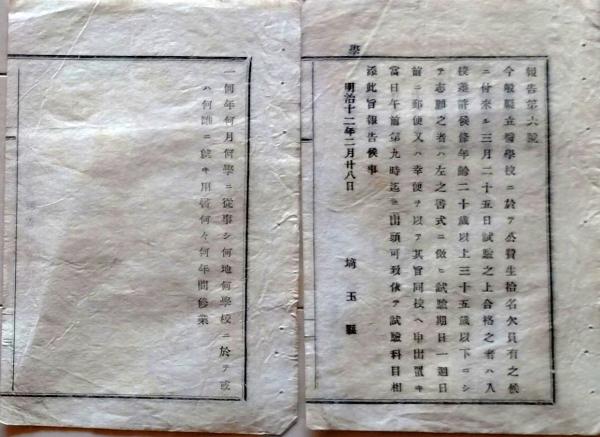 學
報告第六號
今般縣立醫學校ニ於テ公費生拾名欠員有之候
ニ付來ル三月二十五日試驗之上合格之者ハ入
校差許候條年齡二十歲以上三十五歲以下ニシ
テ志願之者ハ左之書式ニ倣ヒ試驗期日一週日
前ニ郵便又ハ幸便ヲ以テ其旨同校ヘ申出置キ
當日午前第九時迄ニ出頭可致依テ試驗科目相
添此旨報告候事
明治十二年二月廿八日
埼玉縣
一何年何月何學ニ從事シ何地何學校ニ於テ或
ハ何誰ニ就キ用書何々何年間修業